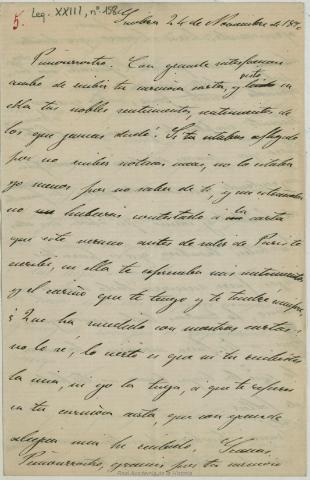 5. Leg. XXIII, nº 158
Ginebra 24 de Noviembre de 18
Con grande satisfaccion
acabo de recibir tu cariñosa carta, y visto en
ella tus nobles sentimientos, sentimientos de
los que jamas dudé. Si tu estabas afligido
por no recibir noticias mias, no lo estaba
yo menos por no saber de ti, y me estrañaba
no hubieras contestado á la carta
que este verano antes de salir de Paris te
escribi, en ella te espresaba mis sentimientos
y el cariño que te tengo y te tendré siempre,
¿Que ha sucedido con nuestras cartas?
no lo sé, lo cierto es que ni tu recibistes
la mia, ni yo la tuya, á que te refieres
en tu cariñosa carta, que con grande
alegria mia he recibido. Gracias,
gracias por tu
Real Academia de la Historia